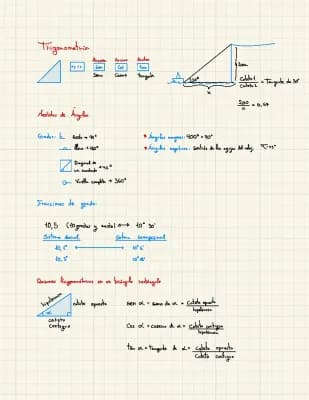 Trigonometría
Arcsen Arccos Arctan
Sen Cos Tan
Seno Coseno Tangente
30°
x
Cateto 1 / Cateto 2 = Tangente de 30°
Medidas de Ángulos
Grados: Recto → 90°
Llano → 180°
Diagonal de un cuadrado → 45°
Vuelta completa → 360°
Ángulos mayores: 400° = 40°
Ángulos negativos: Sentido de las agujas del reloj.
Fracciones de grado:
10,5 (10 grados y medio) ↔ 10° 30'
Sistema decimal Sistema sexagesimal
Razones trigonométricas en un triángulo rectángulo
hipotenusa
cateto opuesto
α
cateto contiguo
sen α = seno de α = Cateto opuesto / hipotenusa
cos α = coseno de α = Cateto contiguo / hipotenusa
tan α = tangente de α = Cateto opuesto / Cateto contiguo